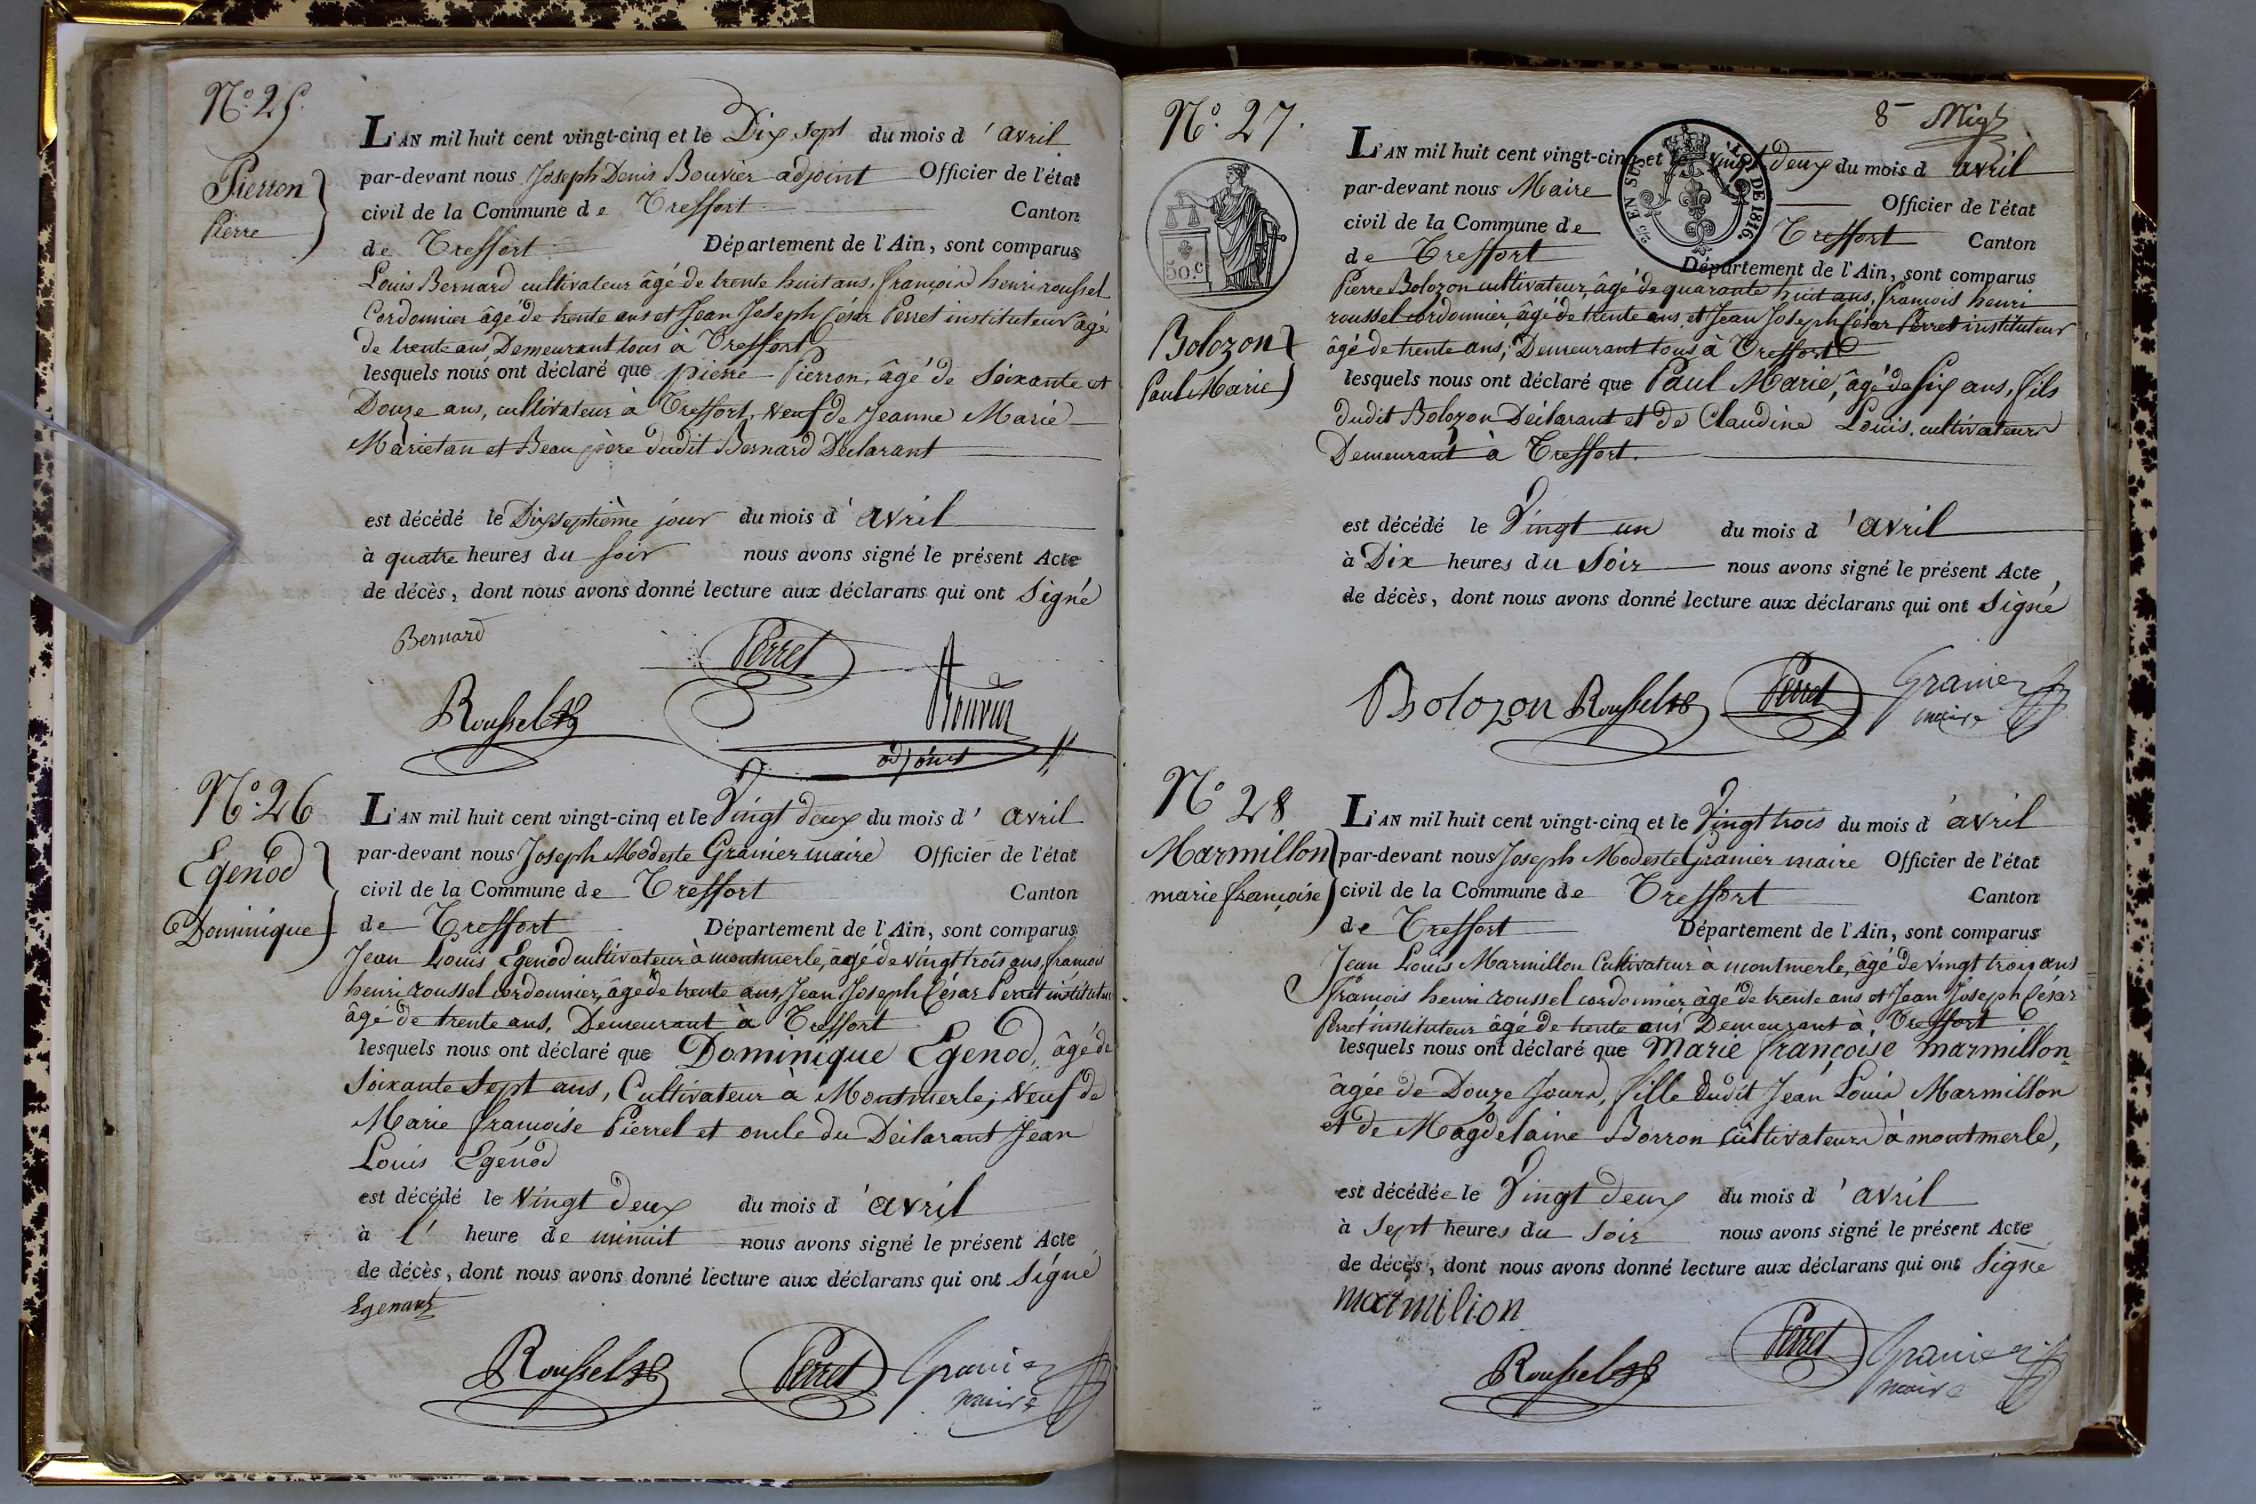 N.° 25.
Pierron
Pierre
L'AN mil huit cent vingt-cinq et le Dix sept du mois d'avril
par-devant nous Joseph Denis Bouvier adjoint Officier de l'état
civil de la Commune de Treffort Canton
de Treffort Département de l'Ain, sont comparus
Louis Bernard cultivateur âgé de trente huit ans, françois henri roussel
Cordonnier âgé de trente ans et Jean Joseph César Perret instituteur âgé
de trente ans Demeurant tous à Treffort
lesquels nous ont déclaré que pierre Pierron, âgé de Soixante et
Douze ans, cultivateur à Treffort, Veuf de Jeanne Marie
Marietan et Beau père dudit Bernard Déclarant
est décédé le Dixseptième jour du mois d'avril
à quatre heures du soir nous avons signé le présent Acte
de décès, dont nous avons donné lecture aux déclarans qui ont Signé
Bernard
Perret
Roussel
Bouvier
adjoint
N.° 26
Egenod
Dominique
L'AN mil huit cent vingt-cinq et le Vingt deux du mois d'avril
par-devant nous Joseph Modeste Granier maire Officier de l'état
civil de la Commune de Treffort Canton
de Treffort Département de l'Ain, sont comparus
Jean Louis Egenod cultivateur à montmerle, âgé de vingt trois ans, françois
henri roussel cordonnier, âgé de trente ans, Jean Joseph César Perret instituteur
âgé de trente ans, Demeurant à Treffort
lesquels nous ont déclaré que Dominique Egenod, âgé de
Soixante Sept ans, Cultivateur à Montmerle, Veuf de
Marie françoise Pierrel et oncle du Déclarant Jean
Louis Egenod
est décédé le Vingt deux du mois d'avril
à l' heure de minuit nous avons signé le présent Acte
de décès, dont nous avons donné lecture aux déclarans qui ont Signé
Roussel
Perret
Granier
maire
8
N.° 27.
EN SUS LOI DE 1816.
50.c
Bolozon
Paul Marie
L'AN mil huit cent vingt-cinq et le vingt deux du mois d avril
par-devant nous Maire Officier de l'état
civil de la Commune de Treffort Canton
de Treffort Département de l'Ain, sont comparus
Pierre Bolozon cultivateur, âgé de quarante huit ans, françois henri
roussel cordonnier, âgé de trente ans, et Jean Joseph César Perret instituteur
âgé de trente ans; Demeurant tous à Treffort
lesquels nous ont déclaré que Paul Marie, âgé de six ans, fils
dudit Bolozon Déclarant et de Claudine Louis, cultivateurs
Demeurant à Treffort.
est décédé le Vingt un du mois d'avril
à Dix heures du Soir nous avons signé le présent Acte
de décès, dont nous avons donné lecture aux déclarans qui ont Signé
Bolozon Roussel Perret Granier
maire
N.° 28
Marmillon
marie françoise
L'AN mil huit cent vingt-cinq et le Vingt trois du mois d'avril
par-devant nous Joseph Modeste Granier maire Officier de l'état
civil de la Commune de Treffort Canton
de Treffort Département de l'Ain, sont comparus
Jean Louis Marmillon Cultivateur à montmerle, âgé de vingt trois ans
françois henri roussel cordonnier âgé de trente ans et Jean Joseph César
Perret instituteur âgé de trente ans Demeurant à Treffort
lesquels nous ont déclaré que Marie françoise marmillon
âgée de Douze Jours, fille dudit Jean Louis Marmillon
et de Magdelaine Borron cultivateurs à montmerle,
est décédée le Vingt deux du mois d'avril
à Sept heures du Soir nous avons signé le présent Acte
de décès, dont nous avons donné lecture aux déclarans qui ont Signé
marmilion
Roussel
Perret
Granier
maire